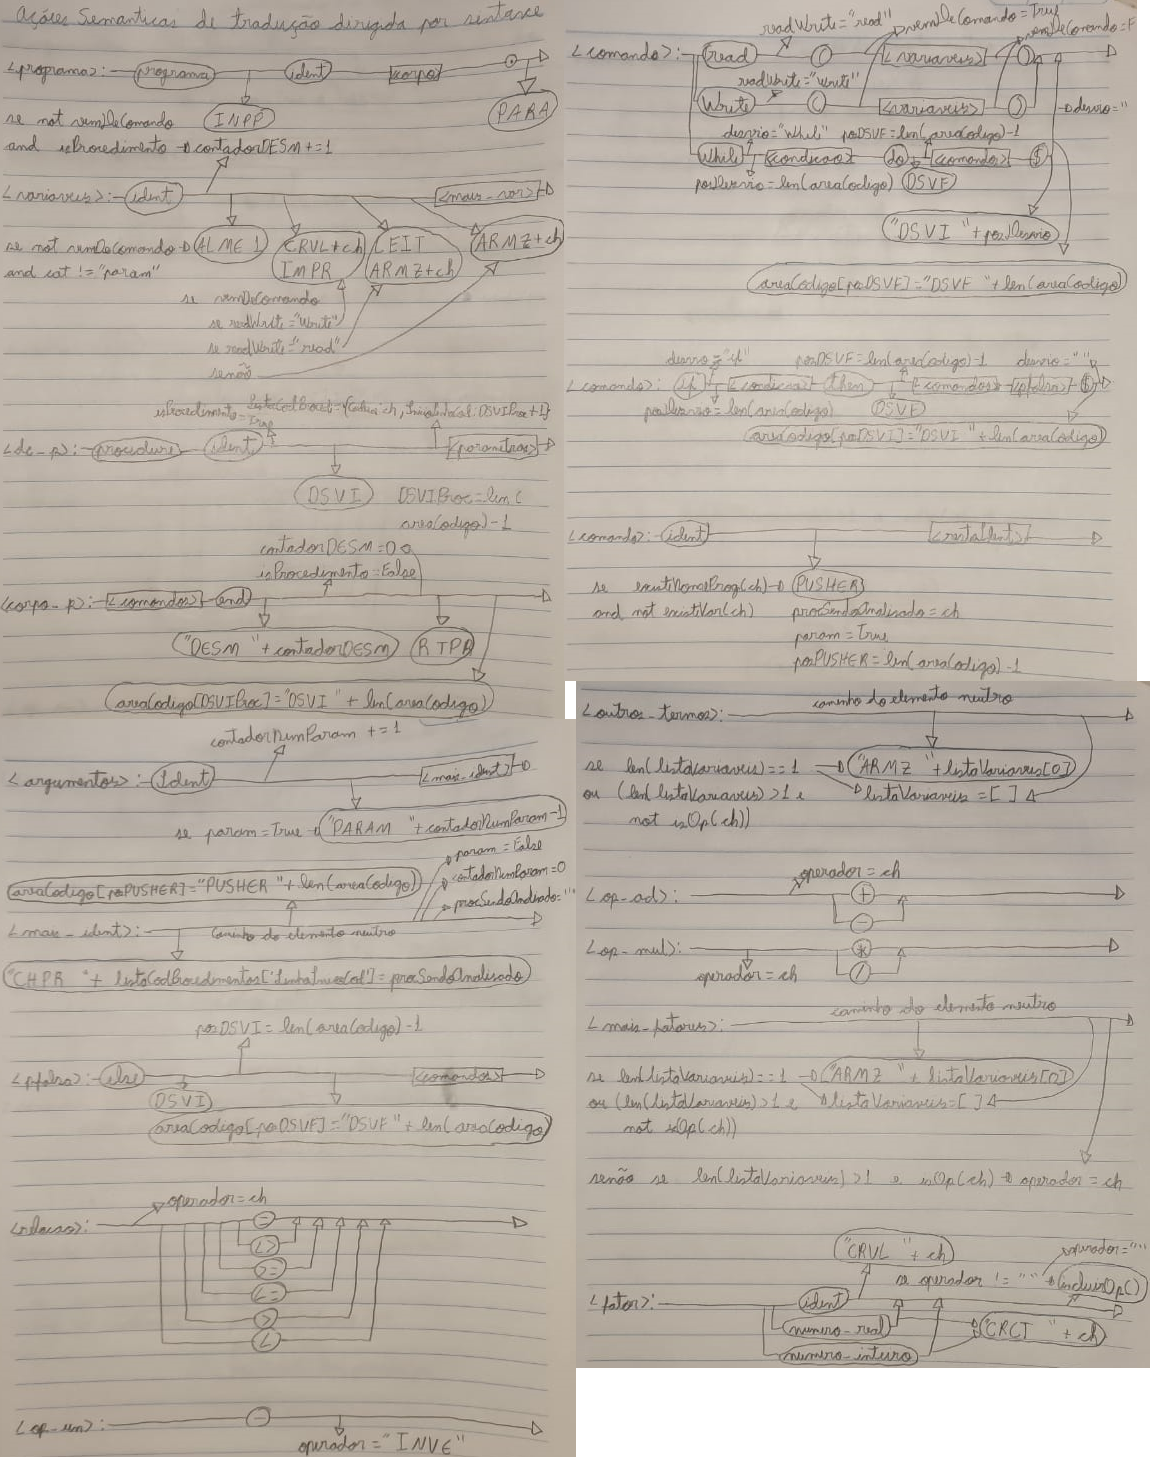 Ações Semanticas de tradução dirigida por sintaxe
<programa>: programa ident <corpo> .
INPP
PARA
se not vemDeComando
and isProcedimento → contadorDESM += 1
<variaveis>: ident <mais_var>
se not vemDeComando → ALME 1
and cat != "param"
CRVL + ch
IMPR
LEIT
ARMZ + ch
ARMZ + ch
se vemDeComando
se readWrite = "write"
se readWrite = "read"
senão
isProcedimento = True
<dc_p>: procedure ident <parametros>
DSVI
DSVIProc = len(
areaCodigo) - 1
contadorDESM = 0
isProcedimento = False
<corpo_p>: <comandos> end
"DESM " + contadorDESM
RTPR
areaCodigo[DSVIProc] = "DSVI " + len(areaCodigo)
contadorNumParam += 1
<argumentos>: ident <mais_ident>
se param = True → "PARAM " + contadorNumParam - 1
param = False
contadorNumParam = 0
procSendoAnalisado = ""
areaCodigo[posPUSHER] = "PUSHER " + len(areaCodigo)
<mais_ident>: caminho do elemento neutro
"CHPR " + listaCodProcedimentos['LinhaInicoCod'] = procSendoAnalisado
posDSVI = len(areaCodigo) - 1
<pfalsa>: else <comandos>
DSVI
areaCodigo[posDSVF] = "DSVF " + len(areaCodigo)
operador = ch
<relacao>: =
<>
>=
<=
>
<
<op_un>: -
operador = "INVE"
readWrite = "read"
vemDeComando = True
vemDeComando = F
<comando>: read ( <variaveis> )
readWrite = "write"
write ( <variaveis> )
desvio = "
desvio = "while" posDSVF = len(areaCodigo) - 1
while <condicao> do <comandos> $
posDesvio = len(areaCodigo) DSVF
"DSVI " + posDesvio
areaCodigo[posDSVF] = "DSVF " + len(areaCodigo)
desvio = "if" posDSVF = len(areaCodigo) - 1 desvio = ""
<comando>: if <condicao> then <comandos> <pfalsa> $
posDesvio = len(areaCodigo) DSVF
areaCodigo[posDSVI] = "DSVI " + len(areaCodigo)
<comando>: ident <restoIdent>
se existiNomeProg(ch) → PUSHER
and not existiVar(ch) procSendoAnalisado = ch
param = True
posPUSHER = len(areaCodigo) - 1
<outros_termos>: caminho do elemento neutro
se len(listaVariaveis) == 1 → "ARMZ " + listaVariaveis[0]
ou (len(listaVariaveis) > 1 e listaVariaveis = [ ]
not isOp(ch))
operador = ch
<op_ad>: +
-
<op_mul>: *
/
operador = ch
caminho do elemento neutro
<mais_fatores>:
se len(listaVariaveis) == 1 → "ARMZ " + listaVariaveis[0]
ou (len(listaVariaveis) > 1 e listaVariaveis = [ ]
not isOp(ch))
senão se len(listaVariaveis) > 1 e isOp(ch) → operador = ch
"CRVL " + ch
operador = ""
se operador != "" → incluirOp()
<fator>: ident
numero_real
numero_inteiro
"CRCT " + ch